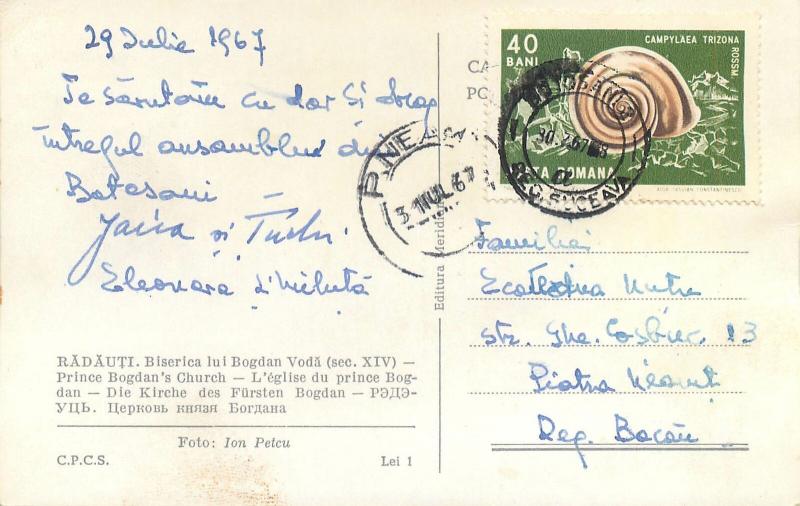 29 Iulie 1967
Te sărutăm cu dor și drag
întregul ansamblu din
Botosani
și Tudor
Eleonora Mihuță
RĂDĂUȚI. Biserica lui Bogdan Vodă (sec. XIV) —
Prince Bogdan's Church — L'église du prince Bog-
dan — Die Kirche des Fürsten Bogdan — РЭДЭ-
УЦЬ. Церковь князя Богдана
Foto: Ion Petcu
C.P.C.S. Lei 1
Editura Meridiane
CA
PO
40
BANI
CAMPYLAEA TRIZONA
ROSSM
POSTA ROMANA
BOTOSANI
30.7.67
REG. SUCEAVA
P. NEAMT
31 IUL 67
Familiei
Ecaterina
str. Ghe. Coșbuc 13
Piatra Neamț
Reg. Bacău